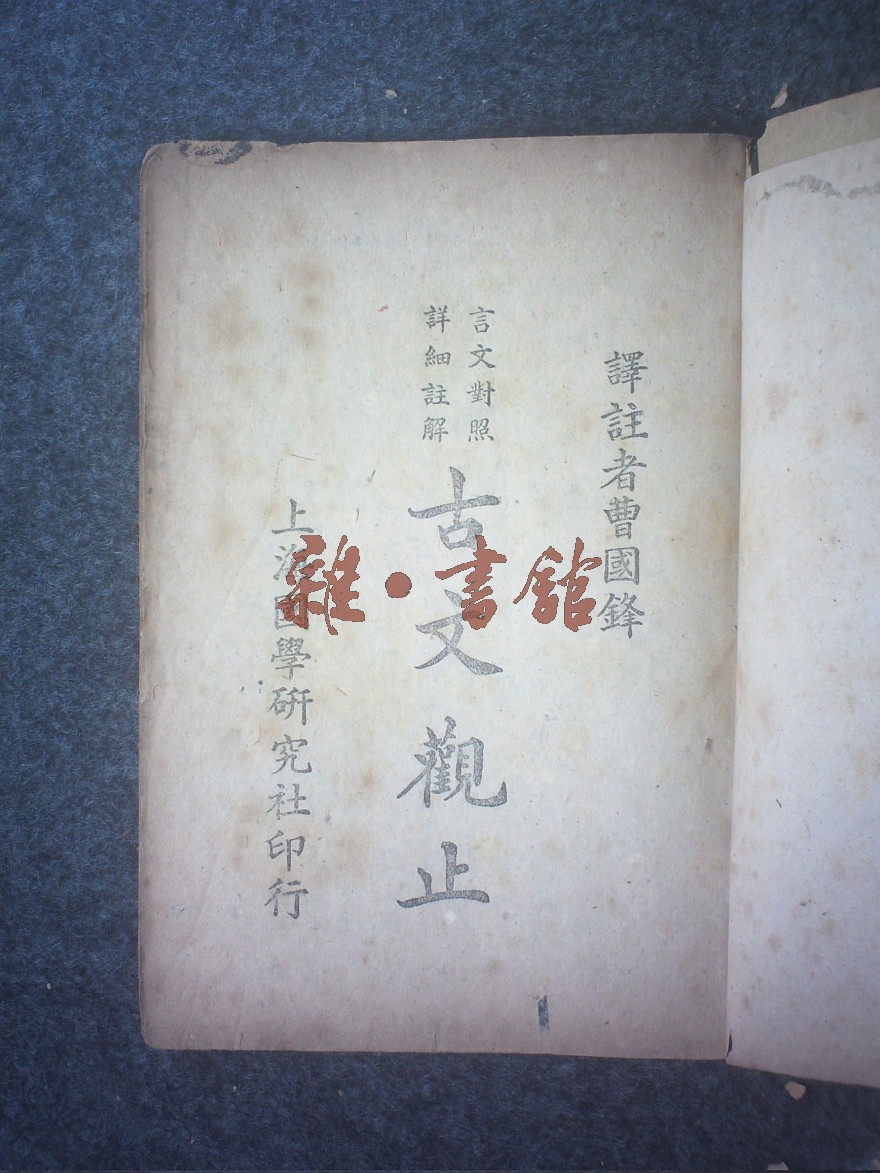 譯註者曹國鋒
言文對照
詳細註解
古文觀止
上海國學研究社印行
雜·書館